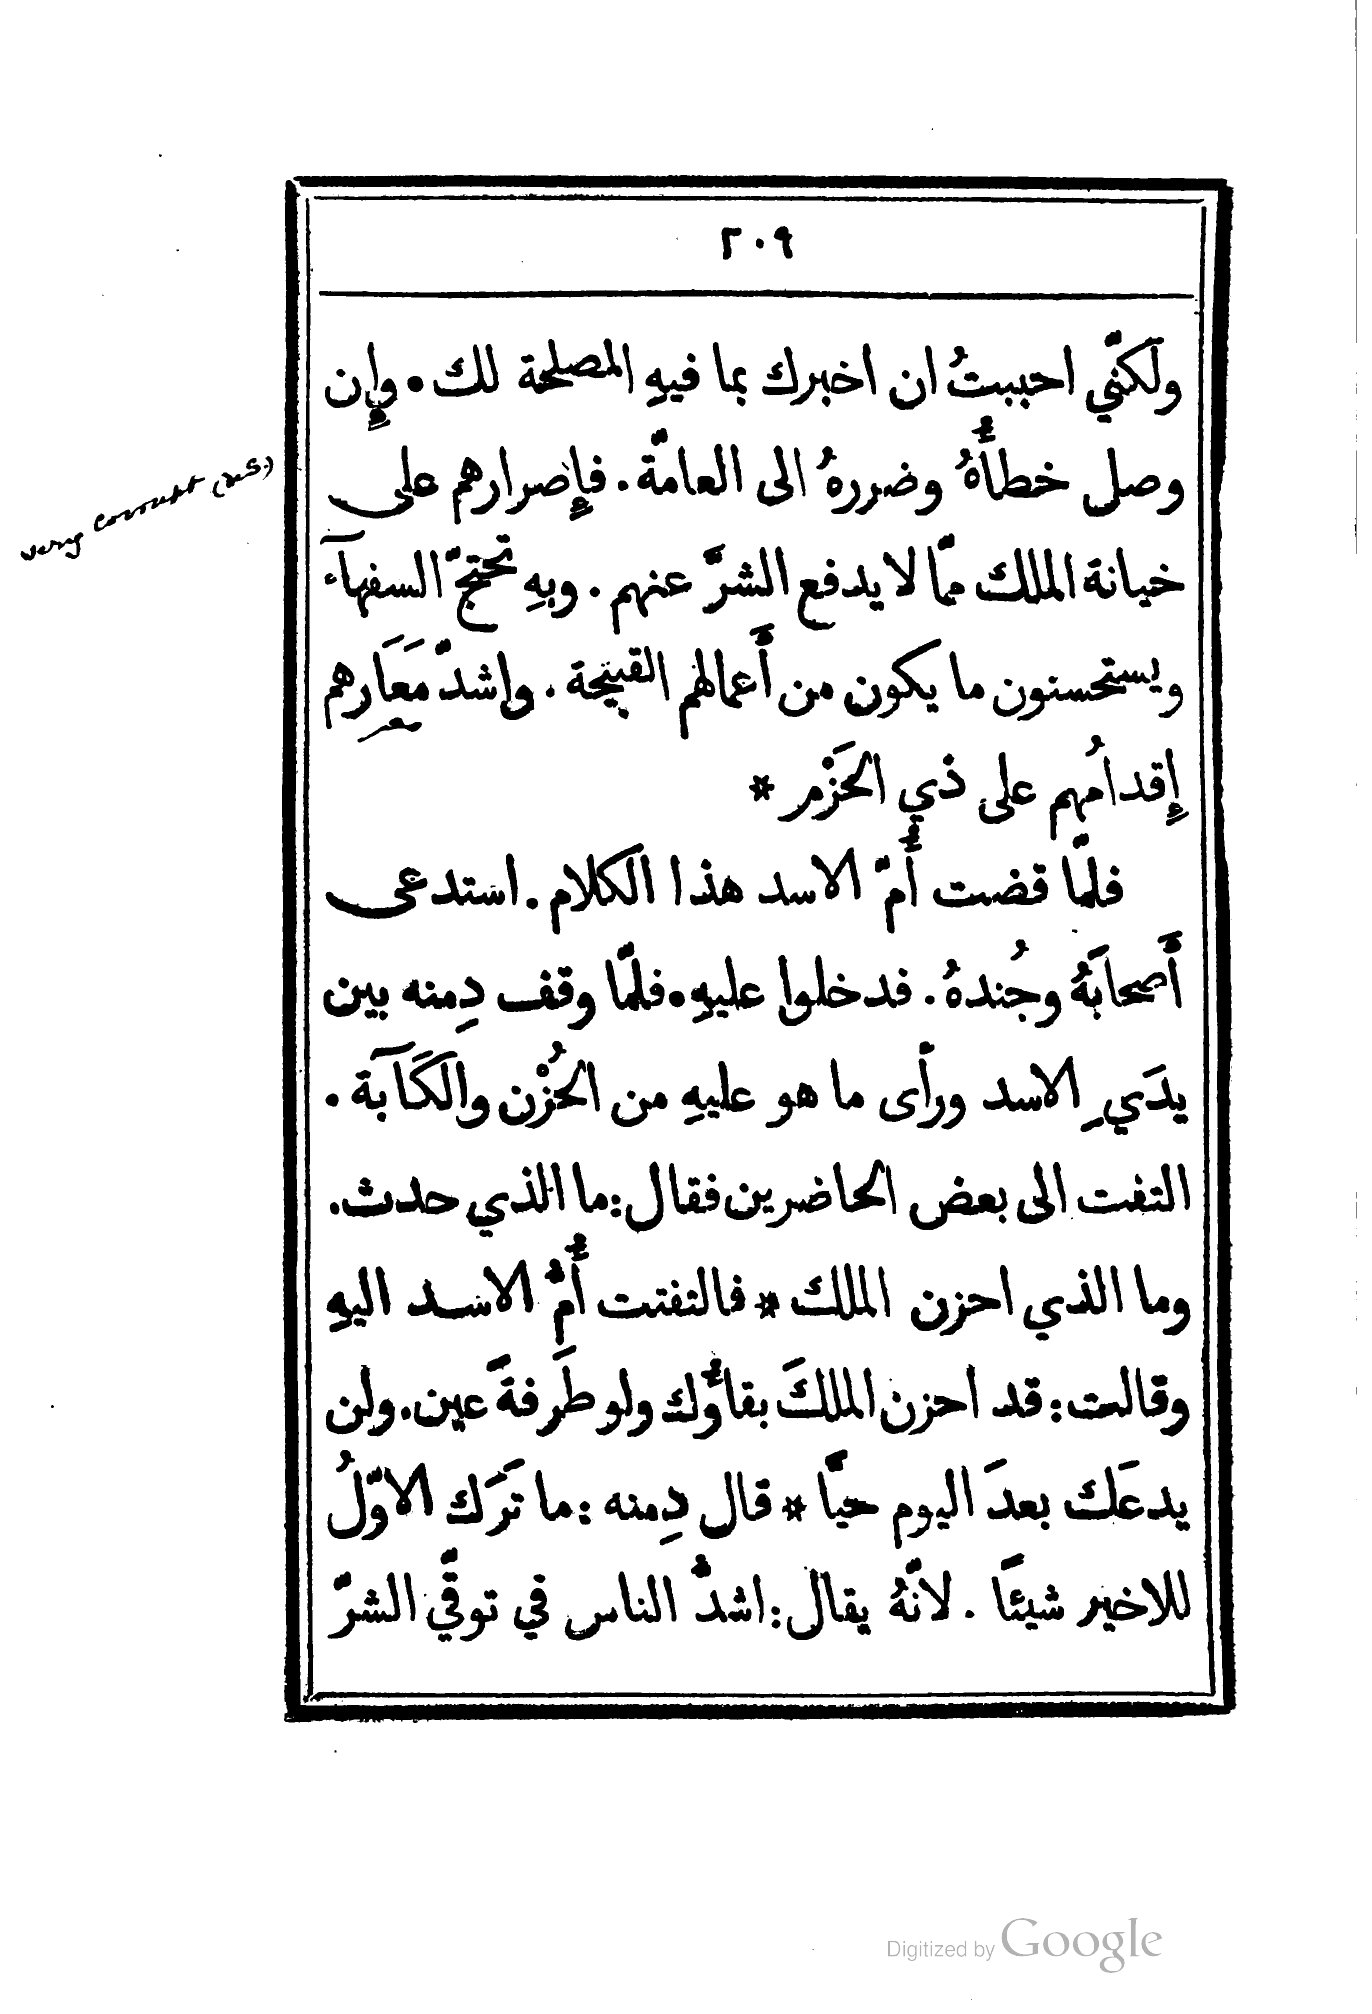 ٢٠٩
ولَكنّي احببتُ ان اخبرك بما فيهِ المصلحة لك . وإِن
وصل خطأُهُ وضررهُ الى العامّة . فإِصرارهم على
خيانة الملك ممّا لا يدفع الشرَّ عنهم . وبهِ تحتجّ السفهآء
ويستحسنون ما يكون من أَعمالهم القبيحة . واشدّ مَعَارهم
إِقدامُهم على ذي الحَزْم *
very corrupt
فلمّا قضت أُمّ الاسد هذا الكلام . استدعى
أَصحابَهُ وجُندهُ . فدخلوا عليهِ . فلمّا وقف دِمنه بين
يدَيِ الاسد ورأَى ما هو عليهِ من الحُزْن والكَآبة .
التفت الى بعض الحاضرين فقال : ما الذي حدث .
وما الذي احزن الملك * فالتفتت أُمُّ الاسد اليهِ
وقالت : قد احزن الملكَ بقاؤُك ولو طَرفةَ عين . ولن
يدعَك بعدَ اليوم حيًّا * قال دِمنه : ما تَرَك الاوّلُ
للاخير شيئًا . لانّهُ يقال : اشدُّ الناس في توقّي الشرّ
Digitized by Google